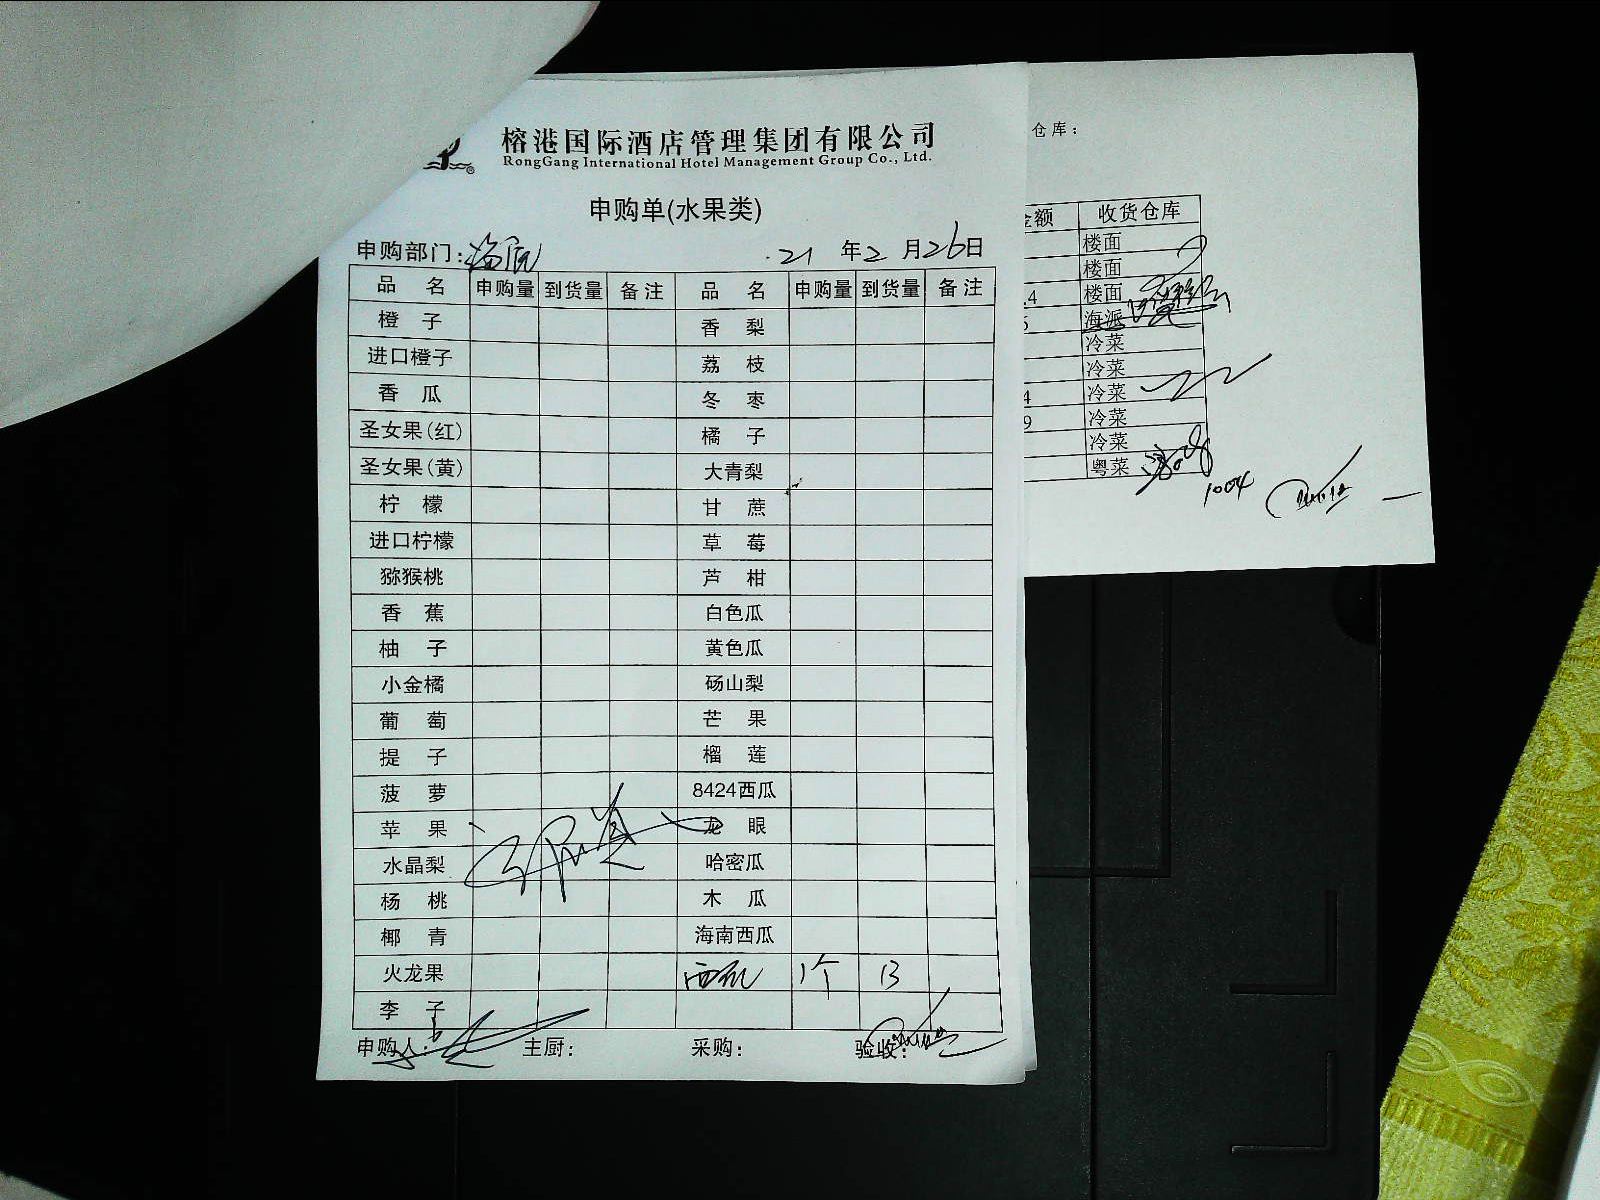 榕港国际酒店管理集团有限公司
RongGang International Hotel Management Group Co., Ltd.
申购单(水果类)
申购部门: 21 年 2 月 26 日
品 名 申购量 到货量 备注 品 名 申购量 到货量 备注
橙 子 香 梨
进口橙子 荔 枝
香 瓜 冬 枣
圣女果(红) 橘 子
圣女果(黄) 大青梨
柠 檬 甘 蔗
进口柠檬 草 莓
猕猴桃 芦 柑
香 蕉 白色瓜
柚 子 黄色瓜
小金橘 砀山梨
葡 萄 芒 果
提 子 榴 莲
菠 萝 8424西瓜
苹 果 龙 眼
水晶梨 哈密瓜
杨 桃 木 瓜
椰 青 海南西瓜
火龙果 西瓜 1个 13
李 子
申购人: 主厨: 采购: 验收:
仓库:
金额 收货仓库
楼面
楼面
.4 楼面
5 海派
冷菜
冷菜
4 冷菜
9 冷菜
冷菜
粤菜
1004